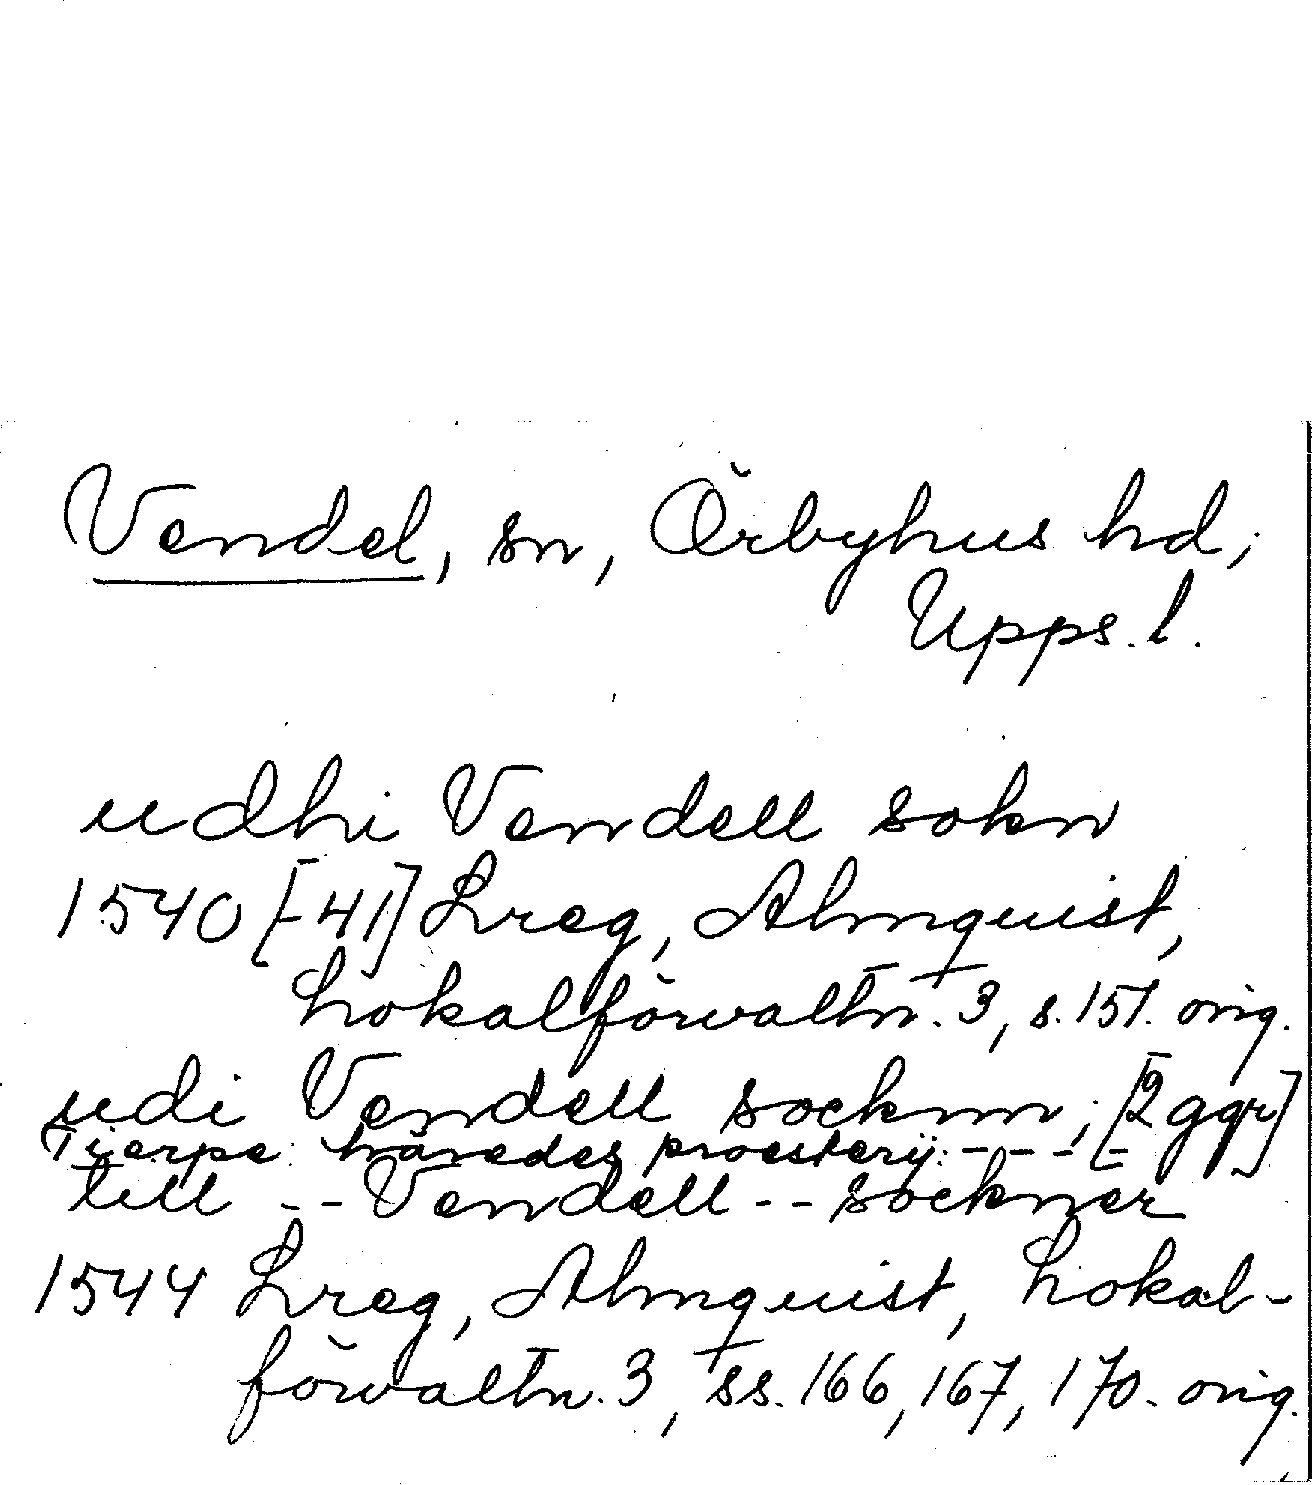 Vendel, sn, Örbyhus hd,
Upps. l.
udhi Vendell sokn
1540 [-41] Lreg, Almquist,
Lokalförvaltn. 3, s. 151. orig.
udi Vendell socknn, [2 ggr]
Tierpe häredes proesterij: - - - -
till - - Vendell - - sockner
1544 Lreg, Almquist, Lokal-
förvaltn. 3, ss. 166, 167, 170. orig.